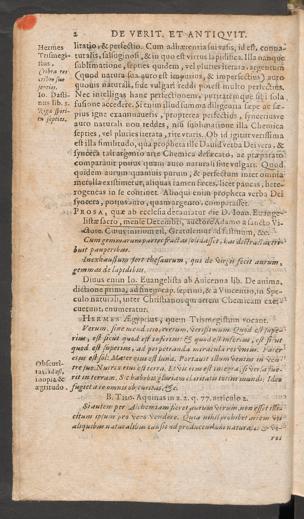 2 DE VERIT. ET ANTIQVIT.
Hermes
Trismegi-
stus.
litatio, & perfectio. Cum adhærentia sui vasis, id est, conna-
turalis, salsuginosi, & in quo est virtus lapidifica. Illa nanque
sublimatione, septies quidem, vel pluries iterata, argentum
(quod natura sua auro est impurius, & imperfectius) auro
quouis naturali, siue vulgari reddi potest multo perfectius.
Nec intelligas hanc perfectionem, puritatemque ipsi sola
fusione accedere. Si enim illud summa diligentia sæpe ac sæ-
pius igne examinaueris, propterea perfectius, synceriusve
auro naturali non reddes, nisi sublimatione illa Chemica
septies, vel pluries iterata, rite vtaris. Ob id igitur verissima
est illa similitudo, qua propheta ille Dauid verba Dei vera, &
syncera tali argento arte Chemica
comparauit potius quam auro naturali siue vulgari. Quod
quidem aurum quamuis purum, & perfectum inter omnia
metalla existimetur, alienas tamen feces, licet paucas, hete-
rogeneas in se continet. Alioquin enim propheta verba Dei
syncera, potius auro, quam argento, comparasset.
PROSA, quæ ab ecclesia decantatur die D. Ioan. Euange-
listæ sacro, mense Decembri, auctore Adamo a Sancto Vi-
ctore. Cuius initium est, Gratulemur ad festinum, &c.
Cum gemmarum partes fractas solidasset, has distractas tri-
buit pauperibus.
Inexhaustum fert thesaurum, qui de virgis fecit aurum,
gemmas de lapidibus.
Diuus enim Io. Euangelista ab Auicenna lib. De anima,
dictione prima, ad finem cap. septimi, & a Vincentio, in Spe-
culo naturali, inter Christianos qui artem Chemicam exer-
cuerunt, enumeratur.
HERMES Ægyptius, quem Trismegistum vocant.
Verum, sine mendacio, certum, verissimum. Quod est supe-
rius, est sicut quod est inferius: & quod est inferius, est sicut
quod est superius, ad perpetranda miracula rei vnius. Pater
eius est sol: Mater eius est luna. Portauit illum ventus in ven-
tre suo. Nutrix eius est terra. Et vis eius est integra, si versa fue-
rit in terram. Sic habebis gloriam claritatis totius mundi: Ideo
fugiet a te omnis obscuritas, &c.
Obscuri-
tas, id est,
inopia &
ægritudo.
B. THO. Aquinas in 2. 2. q. 77. articulo 2.
Si autem per Alchemiam fieret aurum verum, non esset illi-
citum ipsum pro vero vendere. Quia nihil prohibet artem vti
aliquibus naturalibus causis ad producendum naturales & ve-